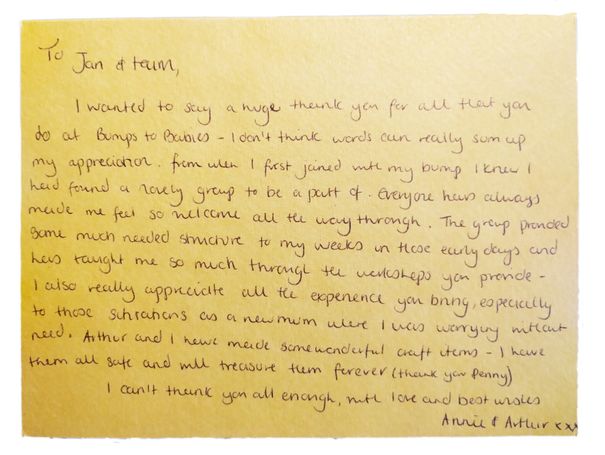 To Jan & team,
I wanted to say a huge thank you for all that you
do at Bumps to Babies - I don't think words can really sum up
my appreciation. From when I first joined with my bump I knew I
had found a lovely group to be a part of. Everyone has always
made me feel so welcome all the way through. The group provided
some much needed structure to my weeks in those early days and
has taught me so much through the workshops you provide -
I also really appreciate all the experience you bring, especially
to those situations as a new mum where I was worrying without
need. Arthur and I have made some wonderful craft items - I have
them all safe and will treasure them forever (thank you Penny)
I can't thank you all enough, with love and best wishes
Annie & Arthur xxx